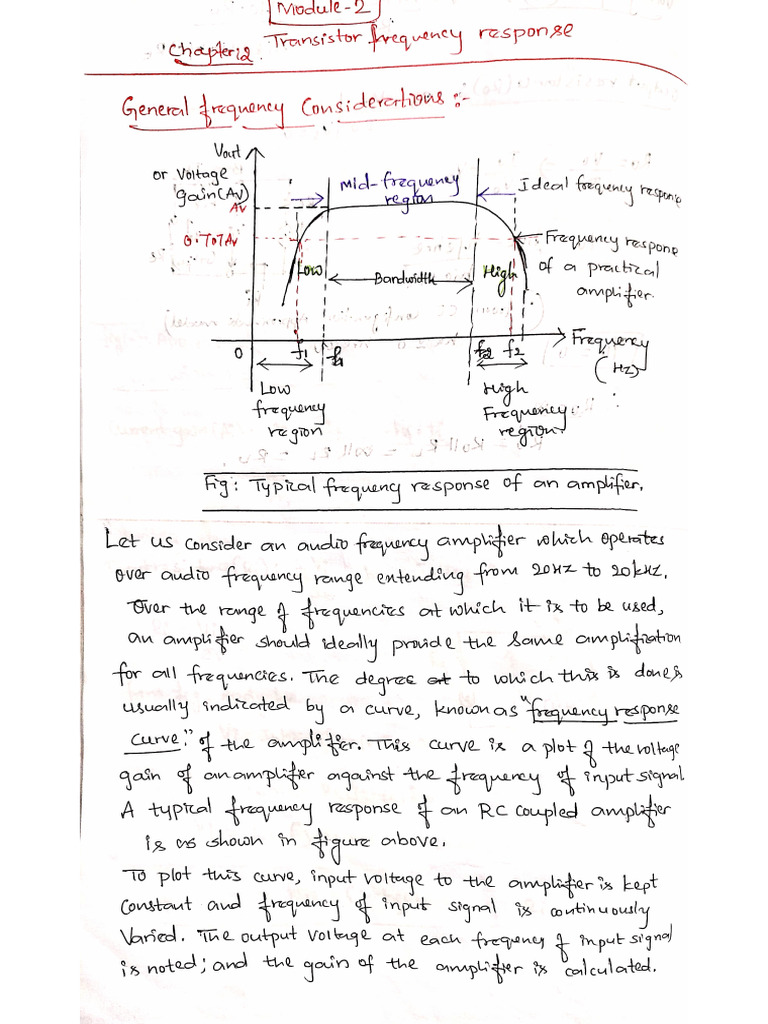 Module-2
Chapter:2. Transistor frequency response
General frequency Considerations:-
Vout
or Voltage
gain (Av)
Av
0.707Av
Mid-frequency
region
Ideal frequency response
Frequency response
of a practical
amplifier.
Low
Bandwidth
High
0
f1
f2
Frequency
(Hz)
Low
frequency
region
High
Frequency
region.
Fig: Typical frequency response of an amplifier.
Let us consider an audio frequency amplifier which operates
over audio frequency range extending from 20Hz to 20kHz.
Over the range of frequencies at which it is to be used,
an amplifier should ideally provide the same amplification
for all frequencies. The degree to which this is done, is
usually indicated by a curve, known as "frequency response
curve." of the amplifier. This curve is a plot of the voltage
gain of an amplifier against the frequency of input signal.
A typical frequency response of an RC coupled amplifier
is as shown in figure above.
To plot this curve, input voltage to the amplifier is kept
constant and frequency of input signal is continuously
Varied. The output voltage at each frequency of input signal
is noted; and the gain of the amplifier is calculated.